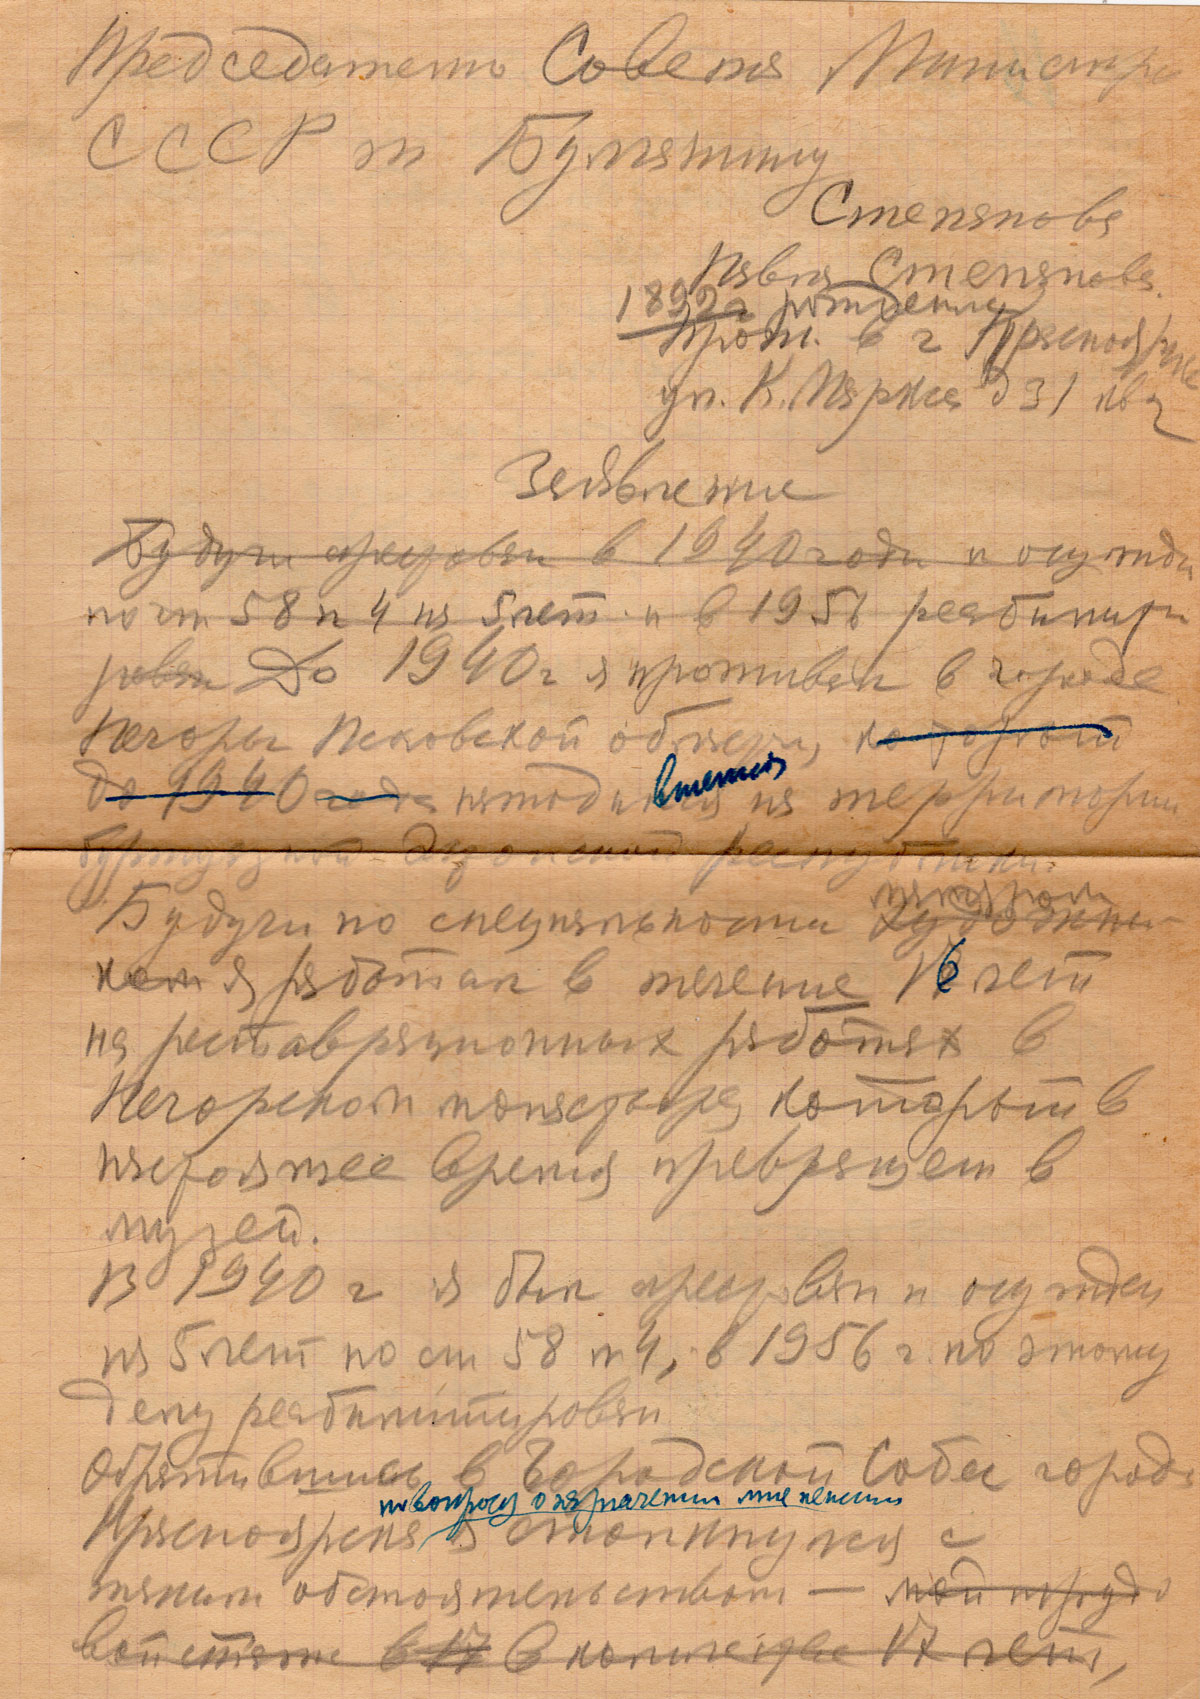 Председателю Совета Министров
СССР т Булганину
Степанова
Павла Степанова
1892 г рождения
прож. в г Красноярске
ул. К. Маркса д 31 кв
Заявление
Будучи арестован в 1940 году и осужден
по ст 58 п 4 на 5 лет и в 1956 реабилити
рован До 1940 г я проживал в городе
Печоры Псковской области, который
до 1940 года находился на территории
влетом
буржуазной Эстонской республики.
Будучи по специальности художни
маляром
ком я работал в течение 16 лет
на реставрационных работах в
Печорском монастыре, который в
настоящее время превращен в
музей.
В 1940 г я был арестован и осужден
на 5 лет по ст 58 п 4, в 1956 г. по этому
делу реабилитирован
Обратившись в Городской Собес города
по вопросу о назначении мне пенсии
Красноярска я столкнулся с
таким обстоятельством — мой трудо
вой стаж в 17 в количестве 17 лет,